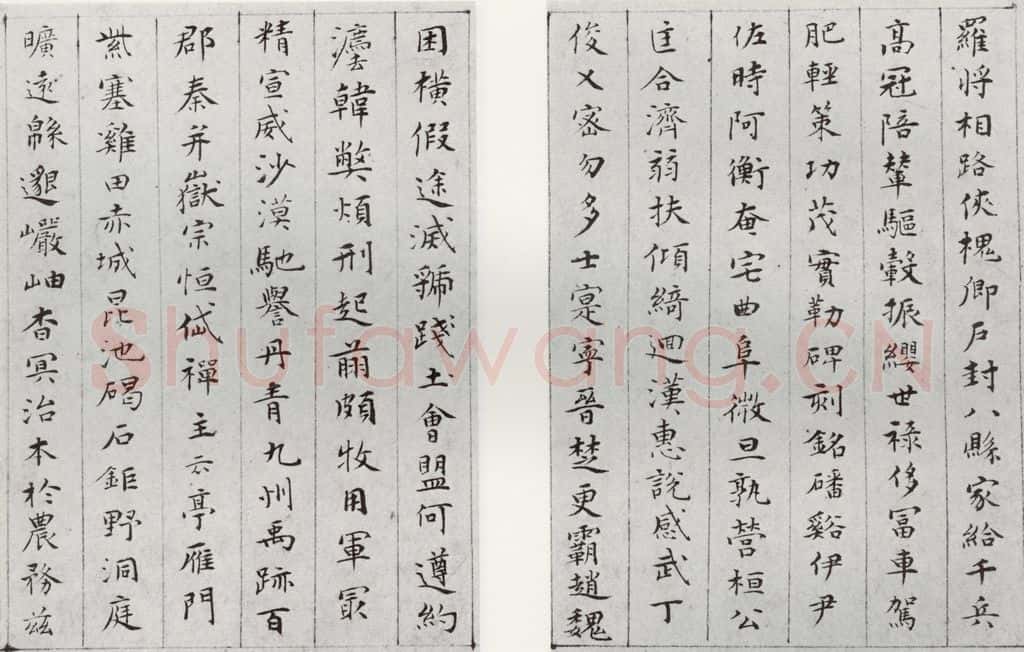 羅將相路俠槐卿戶封八縣家給千兵
高冠陪輦驅轂振纓世祿侈冨車駕
肥輕策功茂實勒碑刻銘磻谿伊尹
佐時阿衡奄宅曲阜微旦孰營桓公
匡合濟弱扶傾綺迴漢惠說感武丁
俊乂密勿多士寔寧晉楚更霸趙魏
困橫假途滅虢踐土會盟何遵約
灋韓弊煩刑起翦頗牧用軍冣
精宣威沙漠馳譽丹青九州禹跡百
郡秦并嶽宗恒岱禪主云亭雁門
紫塞雞田赤城昆池碣石鉅野洞庭
曠遠緜邈巖岫杳冥治本於農務茲
Shufawang.CN